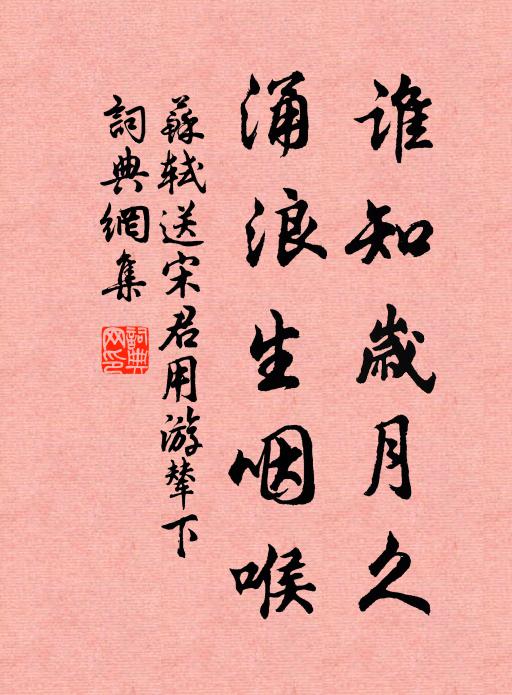 谁知歲月久
涌浪生咽喉
蘇軾送宋君用游輦下
詞典網集
詞典網印